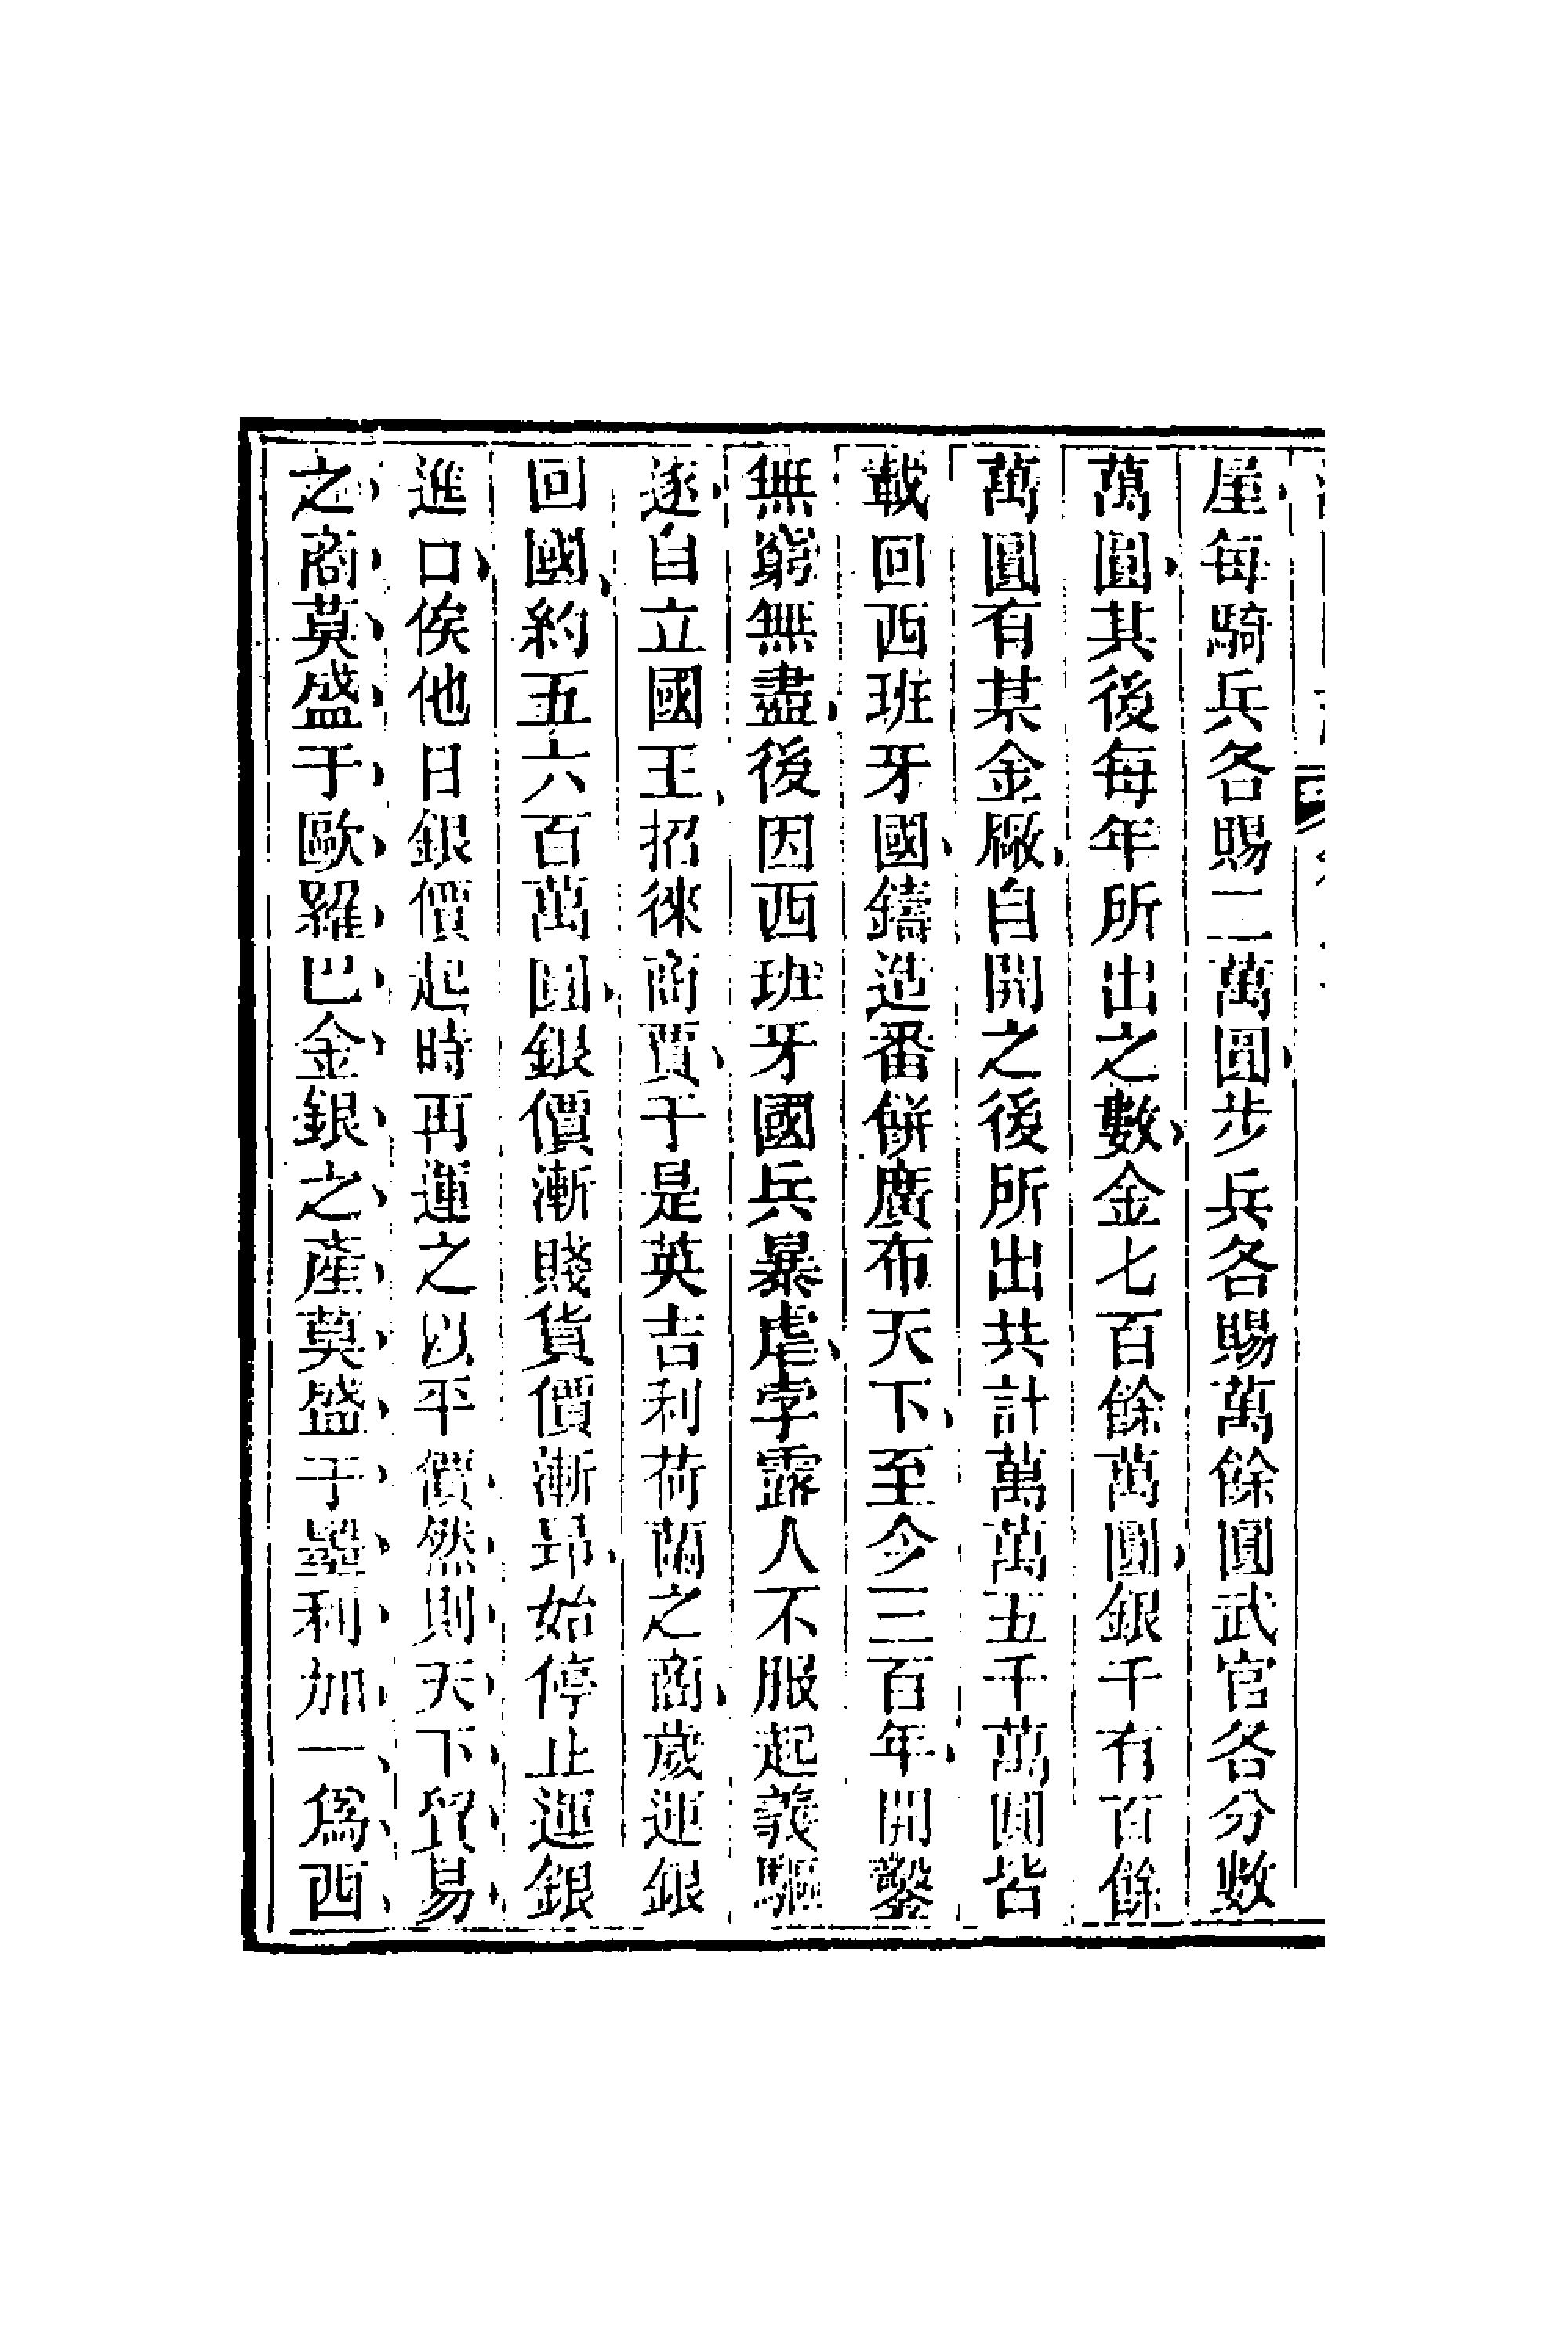 屋每騎兵各賜二萬圓步兵各賜萬餘圓武官各分數
萬圓其後每年所出之數金七百餘萬圓銀千有百餘
萬圓有某金廠自開之後所出共計萬萬五千萬圓皆
載回西班牙國鑄造番餅廣布天下至今三百年開鑿
無窮無盡後因西班牙國兵暴虐孛露人不服起義驅
逐自立國王招徠商賈于是英吉利荷蘭之商歲運銀
回國約五六百萬圓銀價漸賤貨價漸昂始停止運銀
進口俟他日銀價起時再運之以平價然則天下貿易
之商莫盛于歐羅巴金銀之產莫盛于墨利加一爲西